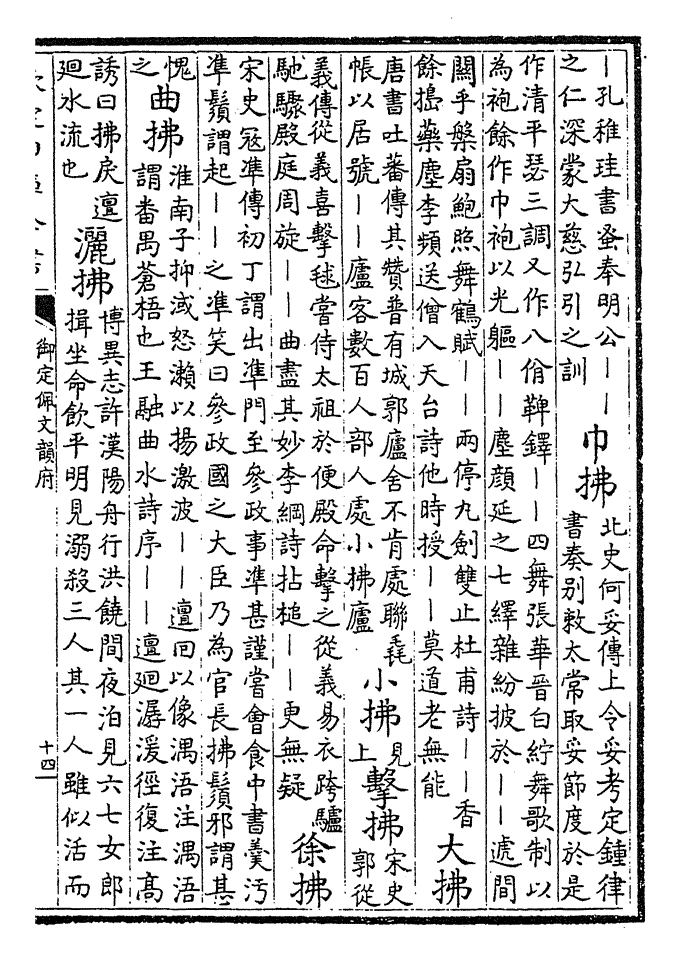 ｜孔稚珪書蚤奉明公｜｜
之仁深蒙大慈弘引之訓
巾拂
北史何妥傳上令妥考定鐘律
書奏别敕太常取妥節度於是
作清平瑟三調又作八佾鞞鐸｜｜四舞張華晉白紵舞歌制以
為袍餘作巾袍以光軀｜｜塵顔延之七繹雜紛披於｜｜遞間
關乎槃扇鮑照舞鶴賦｜｜兩停九劍雙止杜甫詩｜｜香
餘搗藥塵李頻送僧入天台詩他時授｜｜莫道老無能
大拂
唐書吐蕃傳其贊普有城郭廬舍不肯處聯毳
帳以居號｜｜廬容數百人部人處小拂廬
小拂
見
上
擊拂
宋史
郭從
義傳從義喜擊毬嘗侍太祖於便殿命擊之從義易衣跨驢
馳驟殿庭周旋｜｜曲盡其妙李綱詩拈槌｜｜更無疑
徐拂
宋史冦凖傳初丁謂出凖門至參政事凖甚謹嘗會食中書羹汚
凖鬚謂起｜｜之凖笑曰參政國之大臣乃為官長拂鬚邪謂甚
愧
之
曲拂
淮南子抑減怒瀨以揚激波｜｜邅回以像湡浯注湡浯
謂番禺蒼梧也王融曲水詩序｜｜邅廻潺湲徑復注髙
誘曰拂戾邅
廻水流也
灑拂
博異志許漢陽舟行洪饒間夜泊見六七女郎
揖坐命飲平明見溺殺三人其一人雖似活而
御定佩文韻府
十四